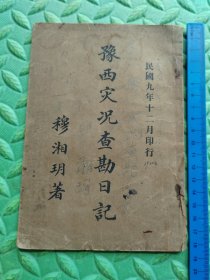 民國九年十二月印行
豫西灾況查勘日記
穆湘玥著